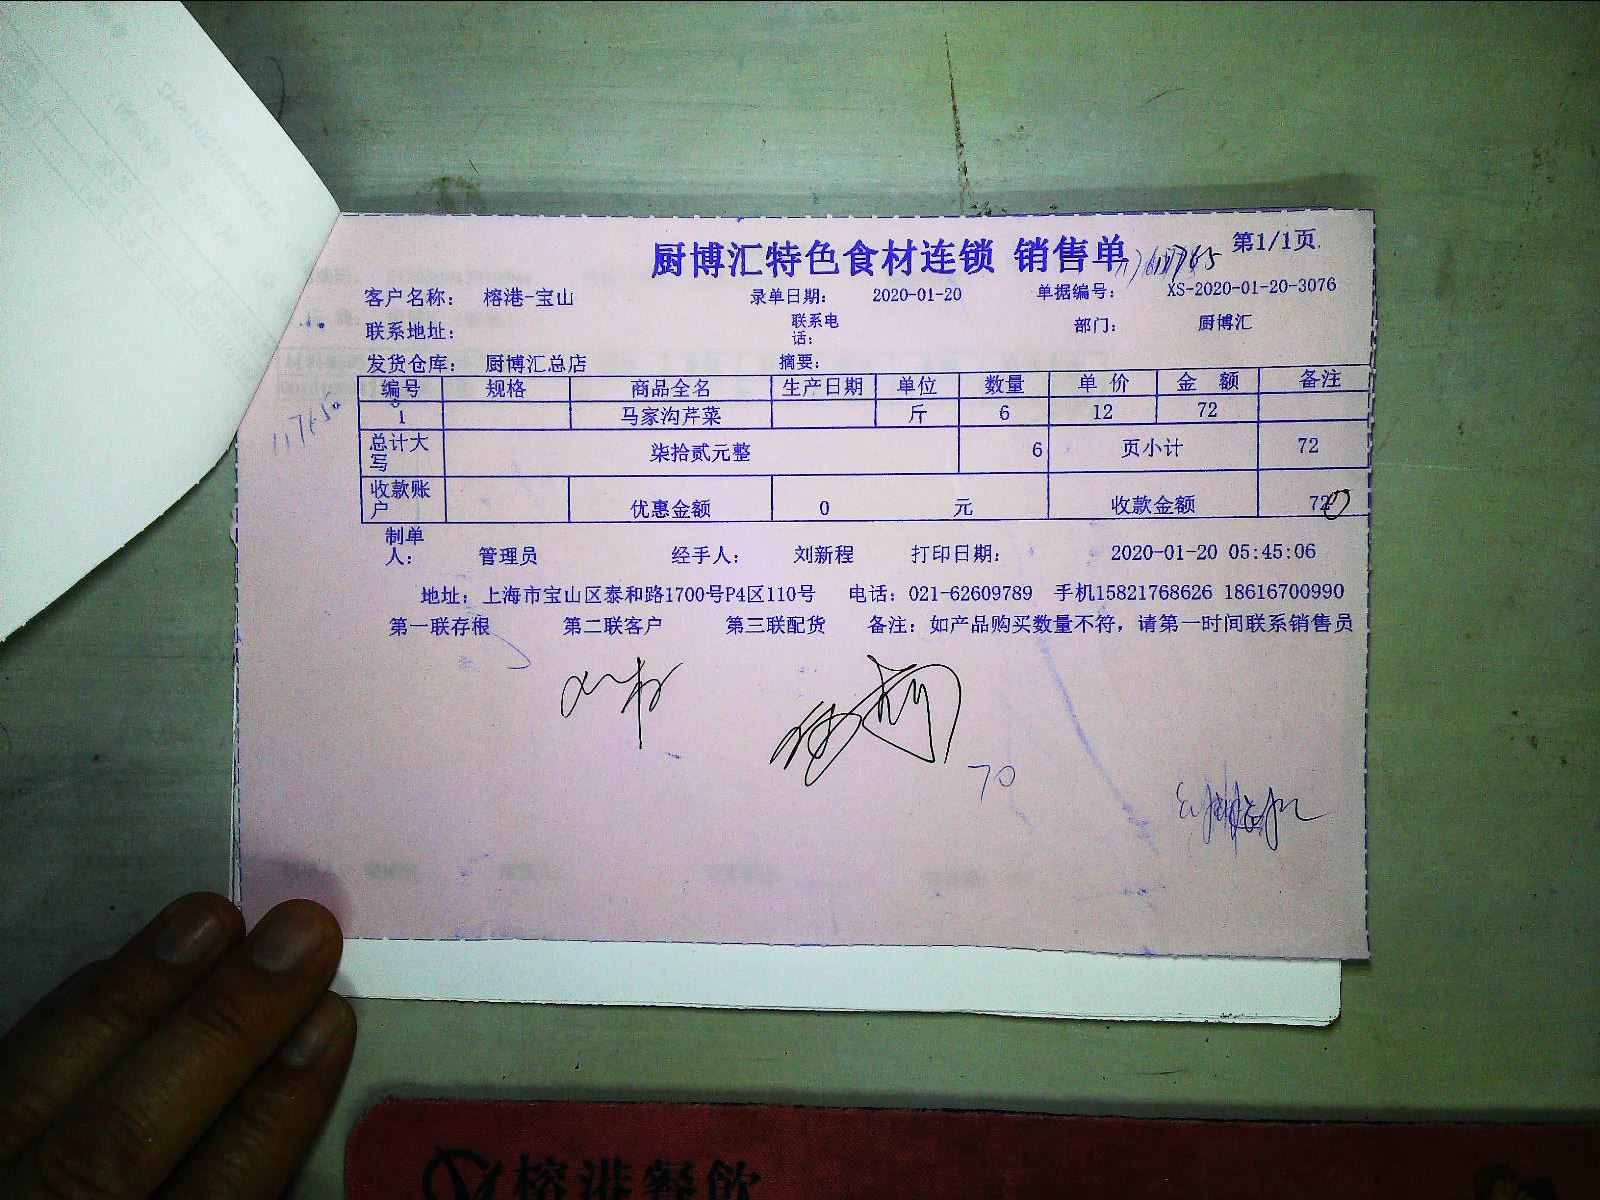 厨博汇特色食材连锁 销售单 第1/1页
客户名称: 榕港-宝山 录单日期: 2020-01-20 单据编号: XS-2020-01-20-3076
联系地址: 联系电话: 部门: 厨博汇
发货仓库: 厨博汇总店 摘要:
编号 规格 商品全名 生产日期 单位 数量 单价 金额 备注
1 马家沟芹菜 斤 6 12 72
总计大写 柒拾贰元整 6 页小计 72
收款账户 优惠金额 0 元 收款金额 72
制单人: 管理员 经手人: 刘新程 打印日期: 2020-01-20 05:45:06
地址: 上海市宝山区泰和路1700号P4区110号 电话: 021-62609789 手机15821768626 18616700990
第一联存根 第二联客户 第三联配货 备注: 如产品购买数量不符, 请第一时间联系销售员
70
榕港餐飲